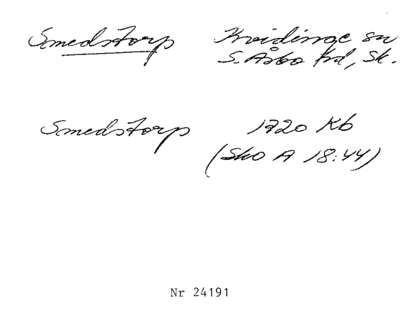 Smedstorp Kvidinge sn
S. Åsbo hd, Sk.
Smedstorp 1720 Kb
(Sko A 18:44)
Nr 24191